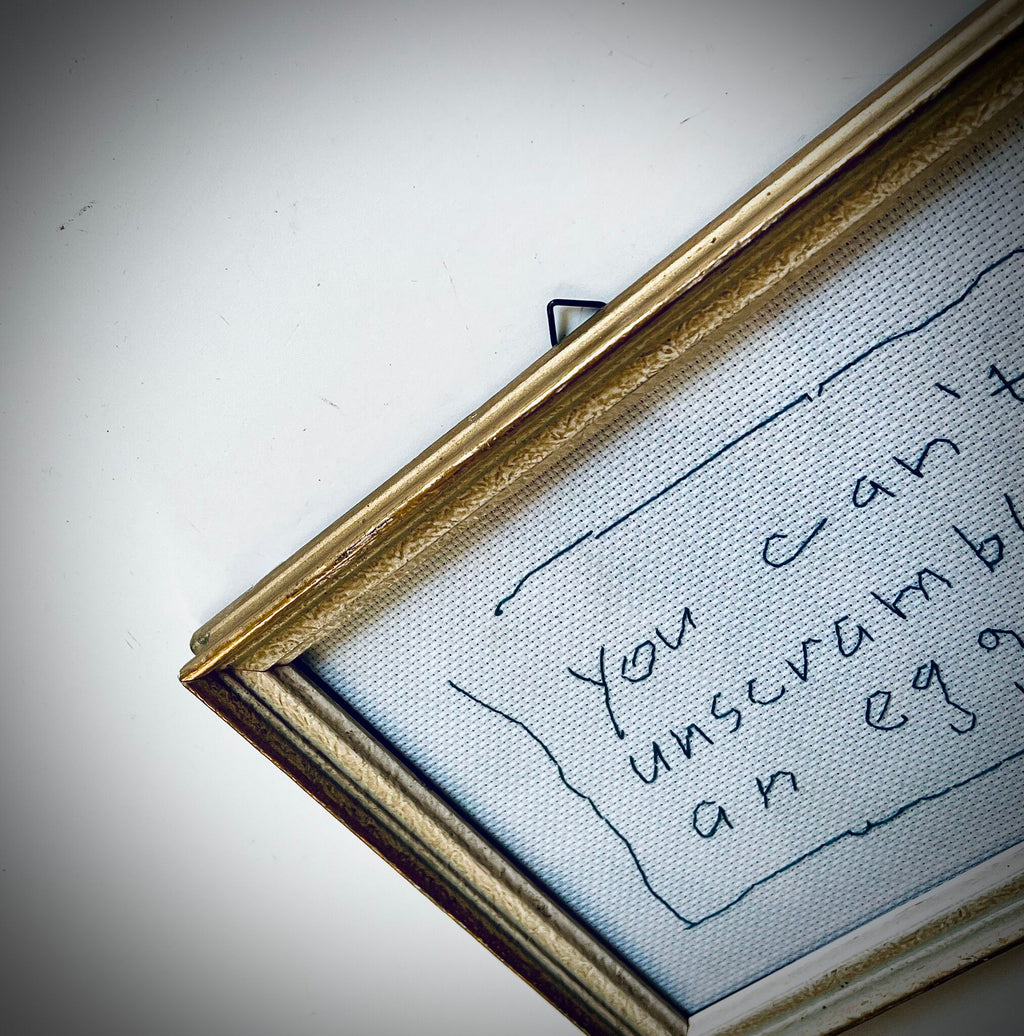 You can't
unscrambl
an eg